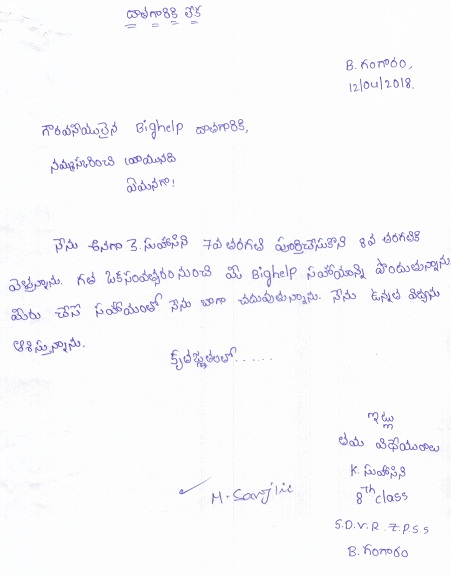 దాతగారికి లేఖ
B. గంగారం,
12/04/2018.
గౌరవనీయులైన Bighelp దాతగారికి,
నమస్కరించి వ్రాయునది
ఏమనగా!
నేను అనగా K. సుహాసిని 7వ తరగతి పూర్తిచేసుకొని 8వ తరగతికి
వెళ్తున్నాను. గత ఒకసంవత్సరం నుంచి మీ Bighelp సహాయాన్ని పొందుతున్నాను
మీరు చేసే సహాయంతో నేను బాగా చదువుతున్నాను. నేను ఉన్నత విద్యను
ఆశిస్తున్నాను.
కృతజ్ఞతలతో......
ఇట్లు
తమ విధేయురాలు
K. సుహాసిని
8th class
S.D.V.R.Z.P.S.S
B. గంగారం